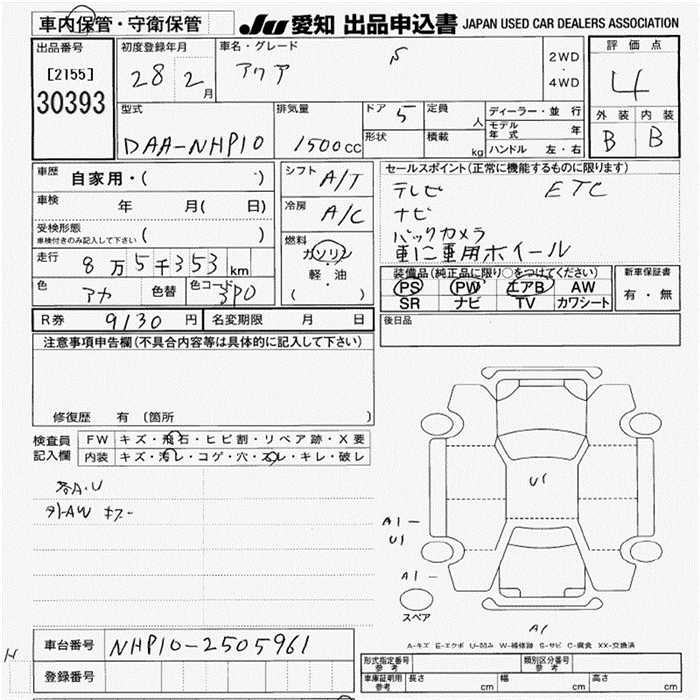 車内保管・守衛保管
JU 愛知 出品申込書 JAPAN USED CAR DEALERS ASSOCIATION
出品番号
[2155]
30393
初度登録年月
28 2月
車名・グレード
アクア S
2WD
・
4WD
評価点
4
外装 内装
B B
型式
DAA-NHP10
排気量
1500cc
ドア 5
形状
定員 人
積載 kg
ディーラー・並行
モデル年式 年
ハンドル 左・右
車歴 自家用・( )
車検 年 月( 日)
受検形態
車検付きのみ記入して下さい ( )
走行 8万5千353km
色 アカ 色替 色コード 3P0
シフト A/T
冷房 A/C
燃料
ガソリン
・
軽・油
( )
セールスポイント(正常に機能するものに限ります)
テレビ ETC
ナビ
バックカメラ
車に専用ホイール
装備品(純正品に限り○をつけてください)
PS PW エアB AW
SR ナビ TV カワシート
新車保証書
有・無
R券 9130円 名変期限 月 日
後日品
注意事項申告欄(不具合内容等は具体的に記入して下さい)
修復歴 有 〔箇所
検査員記入欄
FW キズ・飛石・ヒビ割・リペア跡・X要
内装 キズ・汚レ・コゲ・穴・スレ・キレ・破レ
各A・U
外AW キズー
U1
A1
U1
A1
スペア
A1
A-キズ E-エクボ U-凹み W-補修跡 S-サビ C-腐食 XX-交換済
車台番号 NHP10-2505961
登録番号
形式指定番号 参考
類別区分番号 参考
車庫証明用 参考 長さ cm 幅 cm 高さ cm